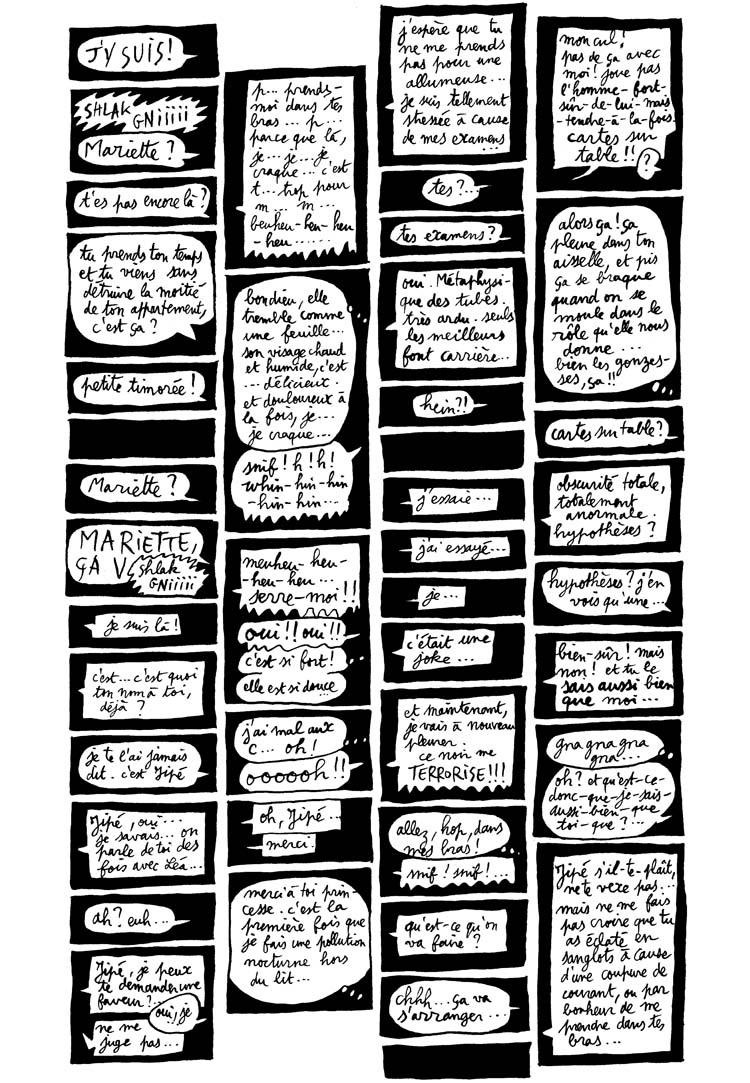 J'Y SUIS!
SHLAK
GNiiiii
Mariette ?
t'es pas encore là ?
tu prends ton temps
et tu viens sans
détruire la moitié
de ton appartement,
c'est ça ?
petite timorée !
Mariette ?
MARiETTE,
ÇA V
shlak
GNiiiii
je suis là !
c'est... c'est quoi
ton nom à toi,
déjà ?
je te l'ai jamais
dit. c'est Jipé
Jipé, oui...
je savais... on
parle de toi des
fois avec Léa...
ah ? euh...
Jipé, je peux
te demander une
faveur ?...
oui, je
ne me
juge pas...
p... prends-
moi dans tes
bras... p...
parce que là,
je... je... je
craque... c'est
t... trop pour
m... m...
beuheu-heu-heu
-heu......
bon dieu, elle
tremble comme
une feuille...
son visage chaud
et humide, c'est
... délicieux.
et douloureux à
la fois, je...
je craque...
snif ! h ! h !
whin-hin-hin
-hin-hin...
meuheu-heu-
-heu-heu...
serre-moi !!
oui !! oui !!
c'est si fort !
elle est si douce
j'ai mal aux
c... oh !
oooooh !!
oh, Jipé...
merci.
merci à toi prin-
cesse. c'est la
première fois que
je fais une pollution
nocturne hors
du lit...
j'espère que tu
ne me prends
pas pour une
allumeuse...
je suis tellement
stressée à cause
de mes examens
...
tes ?...
tes examens ?
oui. Métaphysi-
que des tubes.
très ardu. seuls
les meilleurs
font carrière...
hein ?!
j'essaie...
j'ai essayé...
je...
c'était une
joke...
et maintenant,
je vais à nouveau
pleurer.
ce noir me
TERRORISE !!!
allez, hop, dans
mes bras !
snif ! snif !...
qu'est-ce qu'on
va faire ?
chhh... ça va
s'arranger...
mon cul !
pas de ça avec
moi ! joue pas
l'homme-fort-
sûr-de-lui-mais
-tendre-à-la-fois.
cartes sur
table !!
?
alors ça ! ça
pleure dans ton
aisselle, et pis
ça se braque
quand on se
moule dans le
rôle qu'elle nous
donne...
bien les gonzes-
ses, ça !!
cartes sur table ?
obscurité totale,
totalement
anormale.
hypothèses ?
hypothèses ? j'en
vois qu'une...
bien-sûr ! mais
non ! et tu le
sais aussi bien
que moi...
gna gna gna
gna...
oh ? et qu'est-ce-
donc-que-je-sais-
aussi-bien-que
toi-que ?...
Jipé s'il-te-plaît,
ne te vexe pas...
mais ne me fais
pas croire que tu
as éclaté en
sanglots à cause
d'une coupure de
courant, ou par
bonheur de me
prendre dans tes
bras...